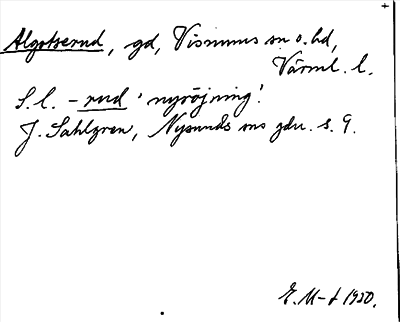 Algotserud, gd, Visnums sn o. hd,
Värml. l.
S. l. -rud 'nyröjning'.
J. Sahlgren, Nysunds sns gdn. s. 9.
E. M-t 1930.